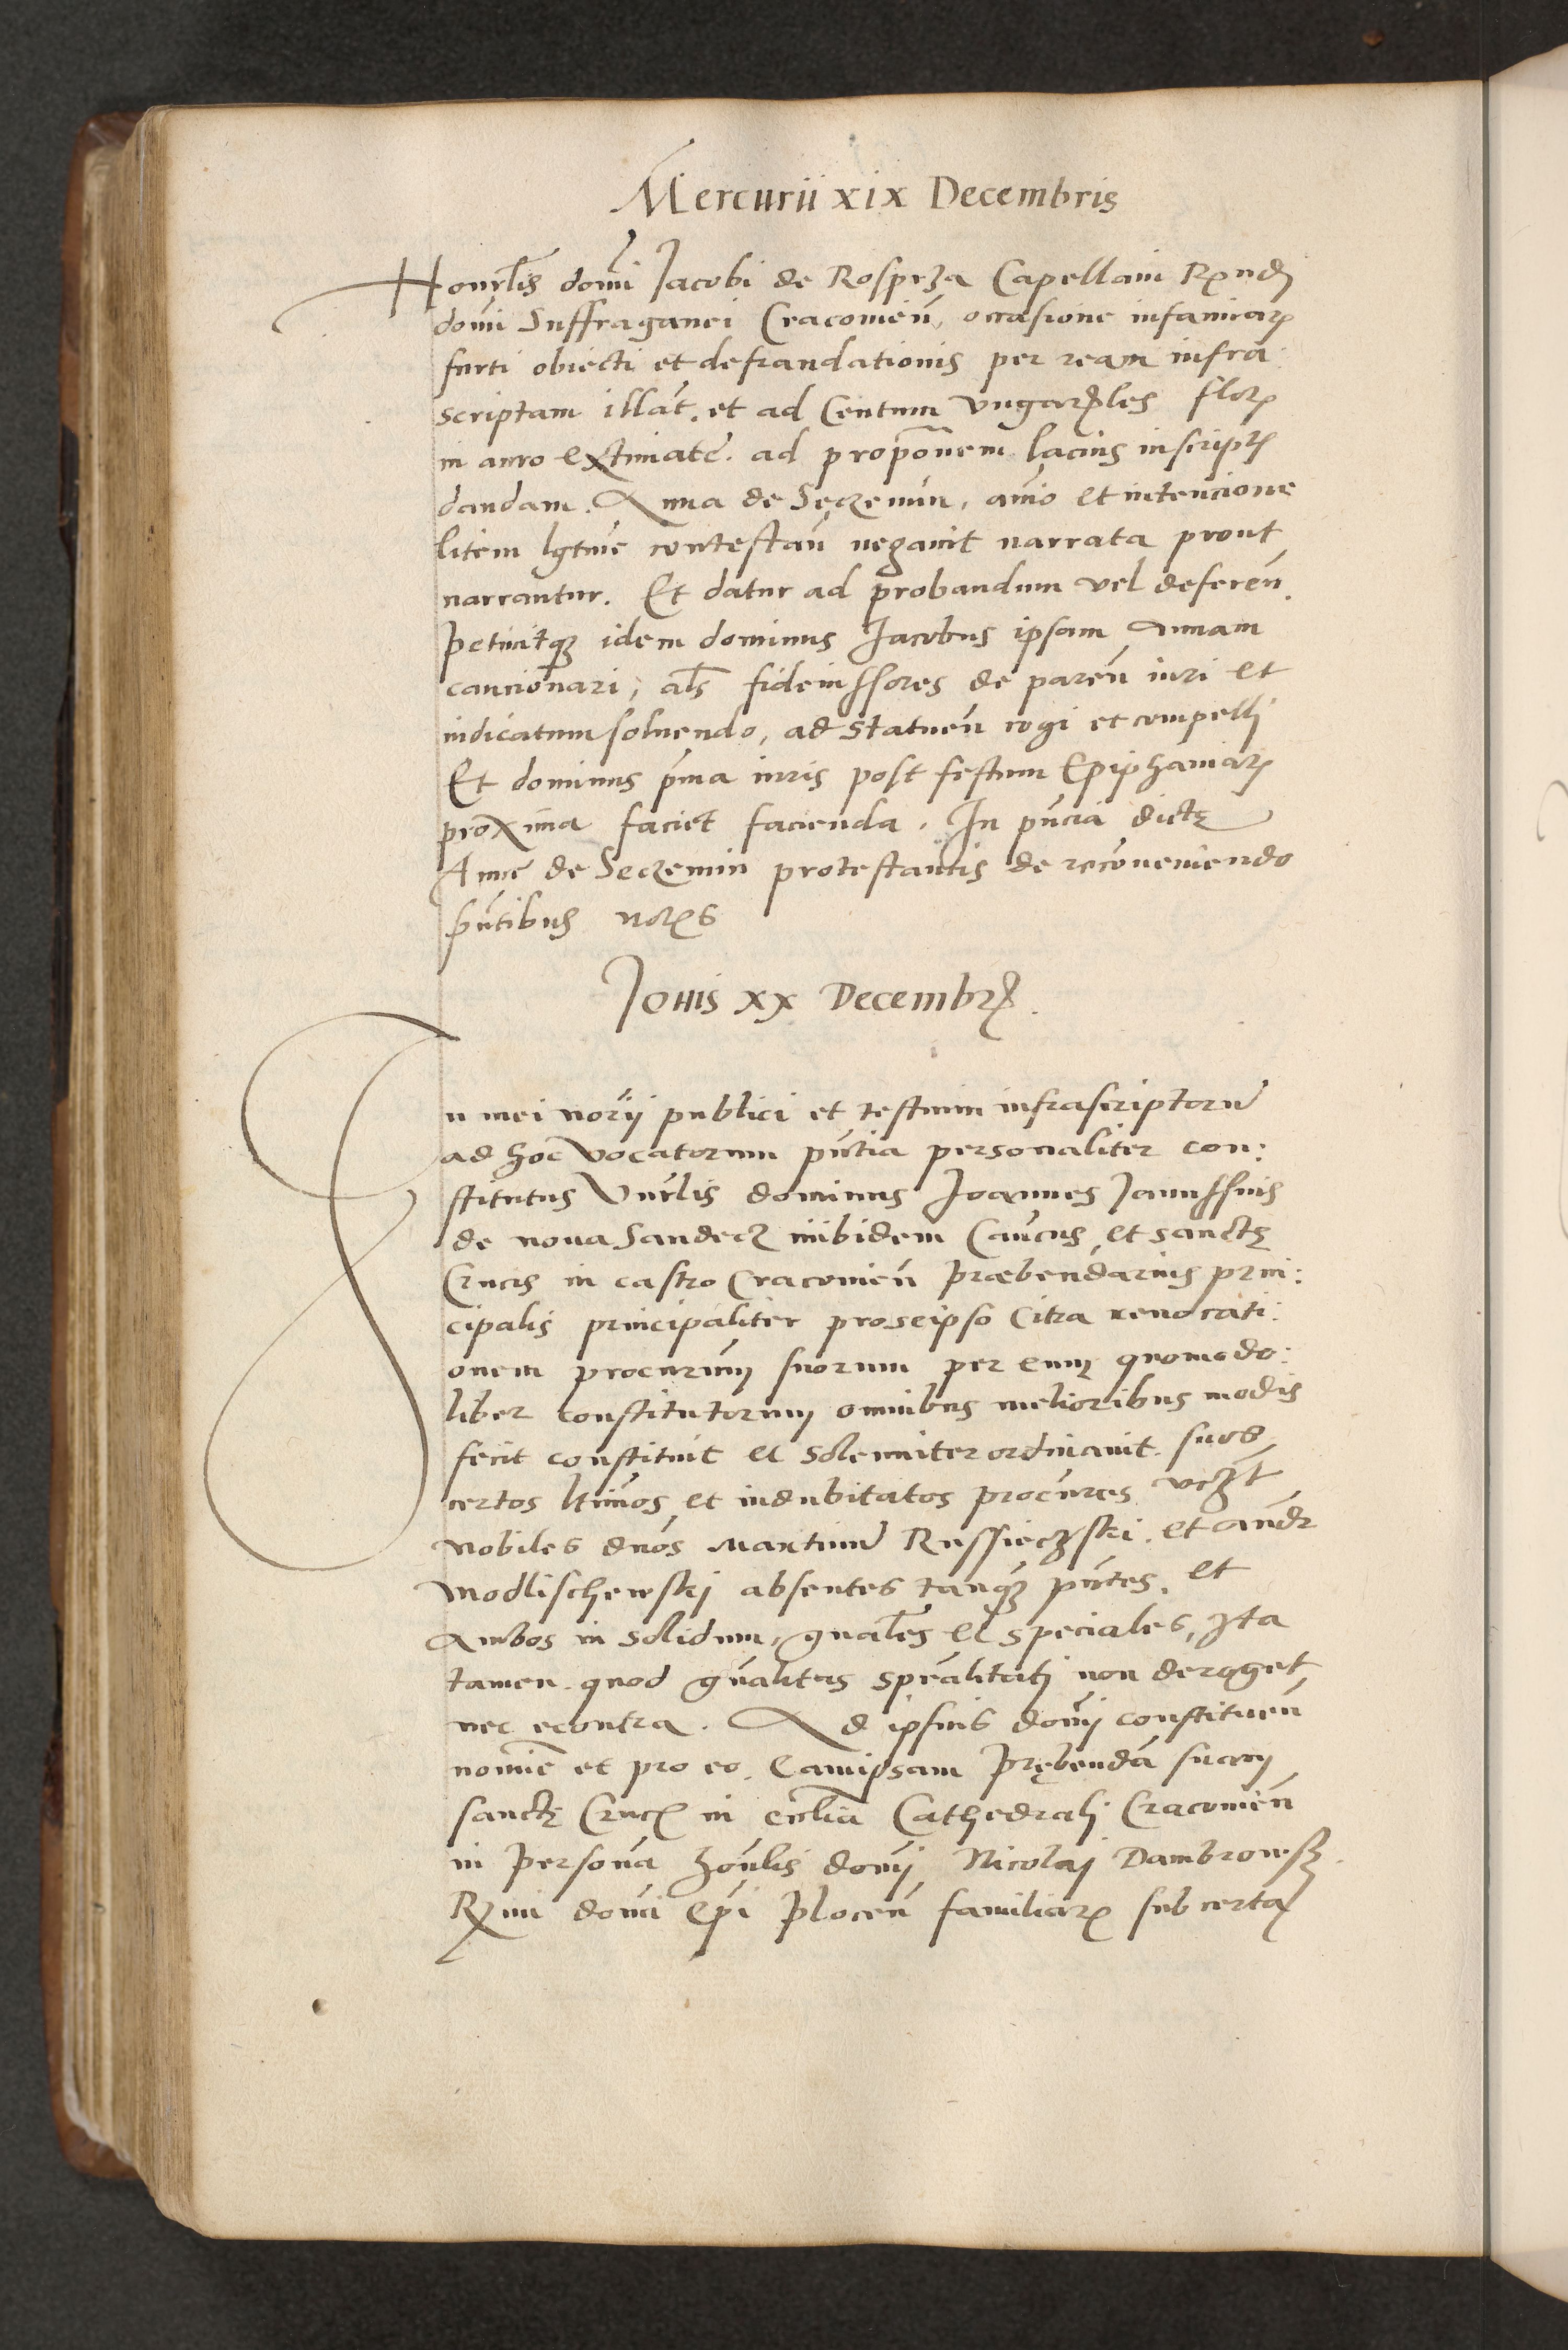 Mercurii xix Decembris
Honrlis domi Jacobi de Rosprza Capellani Rndi
domi Suffraganei Cracouien. occasione infamiar
furti obiecti et defraudationis per ream infra
scriptam illat. et ad Centum vngarales flor
in auro extimate. ad proponem lacius in script
dandam. Anna de Seczemin, animo et intencione
litem lgtime contestan negauit narrata prout
narrantur. Et datur ad probandum vel deferen.
petiuitq3 idem dominus Jacobus ipsam Annam
caucionari, als fideiussores de paren iuri et
iudicatum soluendo, ad statuen cogi et compelli
Et dominus pma iuris post festum Epiphaniar
proxima faciet facienda. In pncia dictę
Anne de Seczemin protestantis de reconueniendo
pntibus notrs
Jouis xx Decembr.
In mei norij publici et testium infrascriptoru
ad hoc vocatorum pntia personaliter con:
stitutus Vnrlis dominus Joannes Janussius
de noua Sandecz inibidem Cancus et sanctę
Crucis in castro Cracouien Præbendarius prin:
cipalis principaliter proseipso Citra reuocati:
onem procurum suorum per eum quomodo:
libet constitutorum omnibus melioribus modis
fecit constituit et solemniter ordinauit suos
certos ltimos et indubitatos procures vczt
Nobiles dnos Martinu Russieczski. et andr
Modlischewski absentes tanq3 pntes. et
Ambos in solidum, gnales et speciales, Ita
tamen quod gnalitas spealitati non deroget
nec econtra. Ad ipsius domi constituen
nomie et pro eo. Eamipsam Prębenda suam
sanctę Cruc in ecclia Cathedrali Cracouien
in persona honlis domi Nicolai Dambrowsk
Rmi domi Epi Plocen familiar sub certa